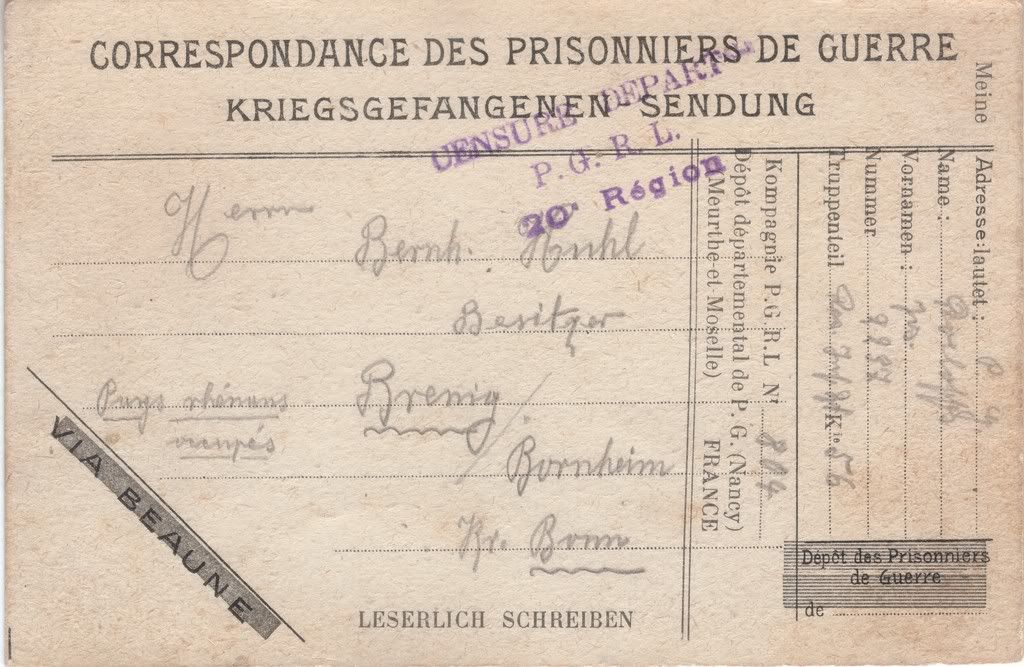 CORRESPONDANCE DES PRISONNIERS DE GUERRE
KRIEGSGEFANGENEN SENDUNG
CENSURE DEPART
P. G. R. L.
20e Région
Herrn
Bernh. Kuhl
Besitzer
Pays rhénans
occupés
Brenig
Bornheim
Kr. Bonn
VIA BEAUNE
LESERLICH SCHREIBEN
Meine Adresse lautet:
Name:
Vornamen:
Nummer 9987
Truppenteil
Kompagnie P. G. R. L Nr 804
Dépôt départemental de P. G. (Nancy)
(Meurthe-et-Moselle) FRANCE
Dépôt des Prisonniers
de Guerre
de